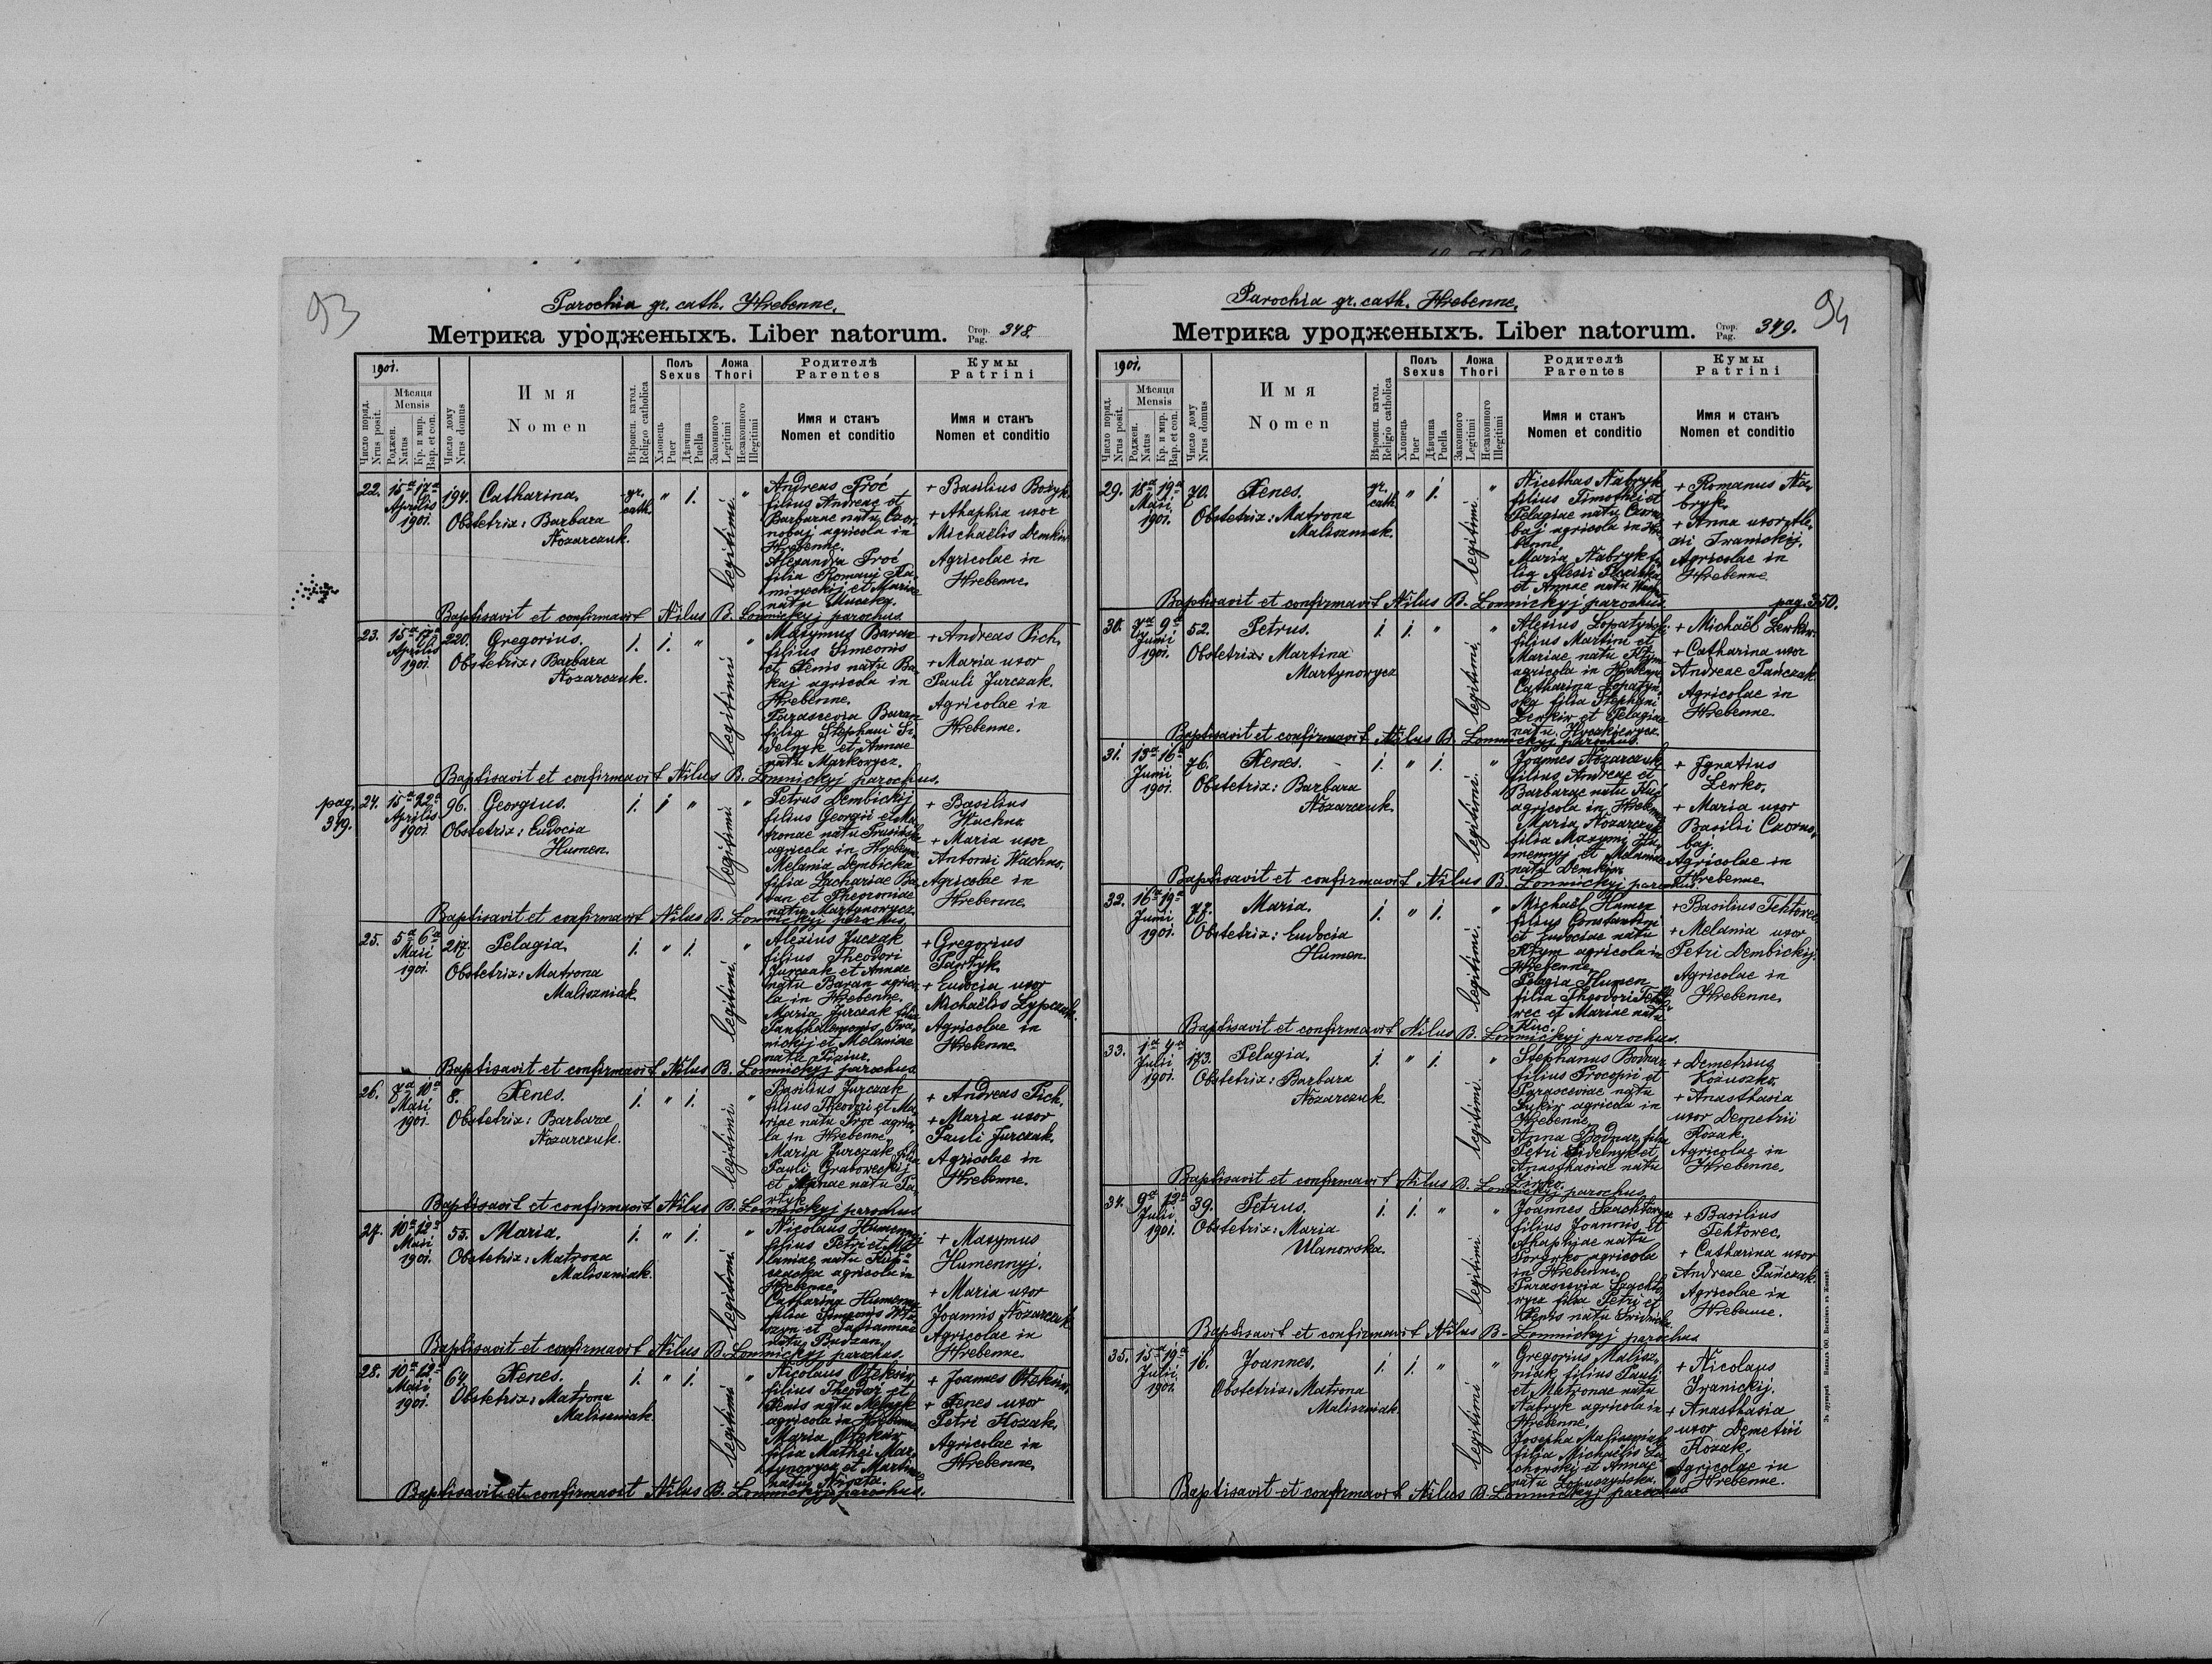 93
Parochia gr. cath. Hrebenne.
Метрика уродженыхъ. Liber natorum.
Стор. Pag. 348.
1901.
Число поряд. Nrus posit.
Мѣсяця Mensis
Роджен. Natus
Кр. и мир. Bap. et con.
Число дому Nrus domus
Имя
Nomen
Вѣроисп. катол. Religio catholica
Полъ Sexus
Хлопець Puer
Дѣвчина Puella
Ложа Thori
Законного Legitimi
Незаконного Illegitimi
Родителѣ Parentes
Имя и станъ
Nomen et conditio
Кумы
Patrini
Имя и станъ
Nomen et conditio
22. 15a 17a Aprilis 1901. 194. Catharina. gr. cath. " 1. legitimi "
Obstetrix: Barbara
Nozarczuk.
Andreas Proć
filius Andreae et
Barbarae natu Czor-
nobaj agricola in
Hrebenne.
Alexandra Proć
filia Romani
et Mariae
natu
+ Basilius Bożyk
+ Ahaphia uxor
Michaëlis Demkiw
Agricolae in
Hrebenne.
Baptisavit et confirmavit Nilus B. Lomnickyj parochus.
23. 15a 17a Aprilis 1901. 220. Gregorius. 1. 1. " legitimi "
Obstetrix: Barbara
Nozarczuk.
Maxymus Baran
filius Simeonis
et Xenis natu Ba-
kaj agricola in
Hrebenne.
Parascevia Baran
filia Stephani Si-
delnyk et Annae
natu Markowycz.
+ Andreas Pich.
+ Maria uxor
Pauli Jurczak.
Agricolae in
Hrebenne.
Baptisavit et confirmavit Nilus B. Lomnickyj parochus.
pag. 349.
24. 15a 22a Aprilis 1901. 96. Georgius. 1. 1 " legitimi "
Obstetrix: Eudocia
Humen.
Petrus Dembickij
filius Georgii et Ma-
tronae natu
agricola in Hrebenne.
Melania Dembicka
filia Zachariae Ba-
ran et
natu Martynowycz.
+ Basilius
Wachno
+ Maria uxor
Antonii Wachno.
Agricolae in
Hrebenne.
Baptisavit et confirmavit Nilus B. Lomnickyj parochus.
25. 5a 6a Maii 1901. 217. Pelagia. 1. " 1. legitimi "
Obstetrix: Matrona
Maliszniak.
Alexius Jurczak
filius Theodori
Jurczak et Annae
natu Baran agrico-
la in Hrebenne.
Maria Jurczak filia
Panthalemonis Iwa-
nickij et Melaniae
natu
+ Gregorius
Pawtyk
+ Eudocia uxor
Michaëlis Lypczuk.
Agricolae in
Hrebenne.
Baptisavit et confirmavit Nilus B. Lomnickyj parochus.
26. 8a 10a Maii 1901. 8. Xenes. 1. " 1. legitimi "
Obstetrix: Barbara
Nozarczuk.
Basilius Jurczak
filius Theodori et Ma-
riae natu Proć agrico-
la in Hrebenne.
Maria Jurczak filia
Pauli Graboweckij
et Annae natu
+ Andreas Pich.
+ Maria uxor
Pauli Jurczak.
Agricolae in
Hrebenne.
Baptisavit et confirmavit Nilus B. Lomnickyj parochus.
27. 10a 12a Maii 1901. 55. Maria. 1. " 1. legitimi "
Obstetrix: Matrona
Maliszniak.
Nicolaus Humennyj
filius Petri et Me-
laniae natu
agricola in
Hrebenne.
Catharina Humenna
filia Simeonis
et Tatiannae
natu Budzan.
+ Maxymus
Humennyj.
+ Maria uxor
Joannis Nozarczuk
Agricolae in
Hrebenne.
Baptisavit et confirmavit Nilus B. Lomnickyj parochus.
28. 10a 12a Maii 1901. 64. Xenes. 1. " 1. legitimi "
Obstetrix: Matrona
Maliszniak.
Nicolaus Oleksiw
filius Theodori et
Xenis natu Melnyk
agricola in Hrebenne.
Maria Oleksiw
filia Mathei Mar-
tynowycz et Martinae
natu
+ Joannes Oleksiw.
+ Xenes uxor
Petri Kozak.
Agricolae in
Hrebenne.
Baptisavit et confirmavit Nilus B. Lomnickyj parochus.
94
Parochia gr. cath. Hrebenne.
Метрика уродженыхъ. Liber natorum.
Стор. Pag. 349.
1901.
Число поряд. Nrus posit.
Мѣсяця Mensis
Роджен. Natus
Кр. и мир. Bap. et con.
Число дому Nrus domus
Имя
Nomen
Вѣроисп. катол. Religio catholica
Полъ Sexus
Хлопець Puer
Дѣвчина Puella
Ложа Thori
Законного Legitimi
Незаконного Illegitimi
Родителѣ Parentes
Имя и станъ
Nomen et conditio
Кумы
Patrini
Имя и станъ
Nomen et conditio
29. 18a 19a Maii 1901. 70. Xenes. gr. cath. " 1. legitimi "
Obstetrix: Matrona
Maliszniak.
Nicethas Nabryk
filius Timothei et
Pelagiae natu Czorno-
baj agricola in Hre-
benne.
Maria Nabryk fi-
lia Alexii
et Annae natu
+ Romanus Na-
bryk.
+ Anna uxor Ale-
xii Iwanickij.
Agricolae in
Hrebenne.
Baptisavit et confirmavit Nilus B. Lomnickyj parochus.
pag. 350.
30. 7a 9a Junii 1901. 52. Petrus. 1. 1. " legitimi "
Obstetrix: Martina
Martynowycz
Alexius Lopatyński
filius Martini et
Mariae natu Krym
agricola in Hrebenne
Catharina Lopatyń-
ska filia Stephani
Lewkiw et Pelagiae
natu Hreczkiewycz.
+ Michaël Lewkiw.
+ Catharina uxor
Andreae Pańczak
Agricolae in
Hrebenne.
Baptisavit et confirmavit Nilus B. Lomnickyj parochus.
31. 13a 16a Junii 1901. 76. Xenes. 1. " 1. legitimi "
Obstetrix: Barbara
Nozarczuk.
Joannes Nozarczuk
filius Andreae et
Barbarae natu Kuć
agricola in Hrebenne
Maria Nozarczuk
filia Maxymi Hu-
mennyj et Melaniae
natu Demkiw.
+ Ignatius
Lewko.
+ Maria uxor
Basilii Czorno-
baj.
Agricolae in
Hrebenne.
Baptisavit et confirmavit Nilus B. Lomnickyj parochus.
32. 16a 19a Junii 1901. 77. Maria. 1. " 1. legitimi "
Obstetrix: Eudocia
Humen.
Michaël Humen
filius Constantini
et Eudociae natu
Krym agricola in
Hrebenne.
Pelagia Humen
filia Theodori Tehto-
wec et Mariae natu
Kuć.
+ Basilius Tehtowec
+ Melania uxor
Petri Dembickij.
Agricolae in
Hrebenne.
Baptisavit et confirmavit Nilus B. Lomnickyj parochus.
33. 1a 4a Julii 1901. 173. Pelagia. 1. " 1. legitimi "
Obstetrix: Barbara
Nozarczuk.
Stephanus Bodnar
filius Procopii et
Parasceviae natu
Lukiw agricola in
Hrebenne.
Anna Bodnar filia
Petri Sidelnyk et
Anasthasiae natu
Lewko.
+ Demetrius
Kożuszko.
+ Anasthasia
uxor Demetrii
Kozak.
Agricolae in
Hrebenne.
Baptisavit et confirmavit Nilus B. Lomnickyj parochus
34. 9a 12a Julii 1901. 39. Petrus. 1. 1. " legitimi "
Obstetrix: Maria
Ulanowska.
Joannes Szachtowycz
filius Joannis et
Ahaphiae natu
agricola
in Hrebenne.
Parascevia Szachto-
wycz filia Petri et
Xenis natu
+ Basilius
Tehtowec.
+ Catharina uxor
Andreae Pańczak
Agricolae in
Hrebenne.
Baptisavit et confirmavit Nilus B. Lomnickyj parochus
35. 15a 19a Julii 1901. 16. Joannes. 1. 1. " legitimi "
Obstetrix: Matrona
Maliszniak.
Gregorius Malisz-
niak filius Pauli
et Matronae natu
Nabryk agricola in
Hrebenne.
Josepha Maliszniak
filia Michaëlis
et Annae
natu Lopuszyńska.
+ Nicolaus
Iwanickij.
+ Anasthasia
uxor Demetrii
Kozak.
Agricolae in
Hrebenne.
Baptisavit et confirmavit Nilus B. Lomnickyj parochus